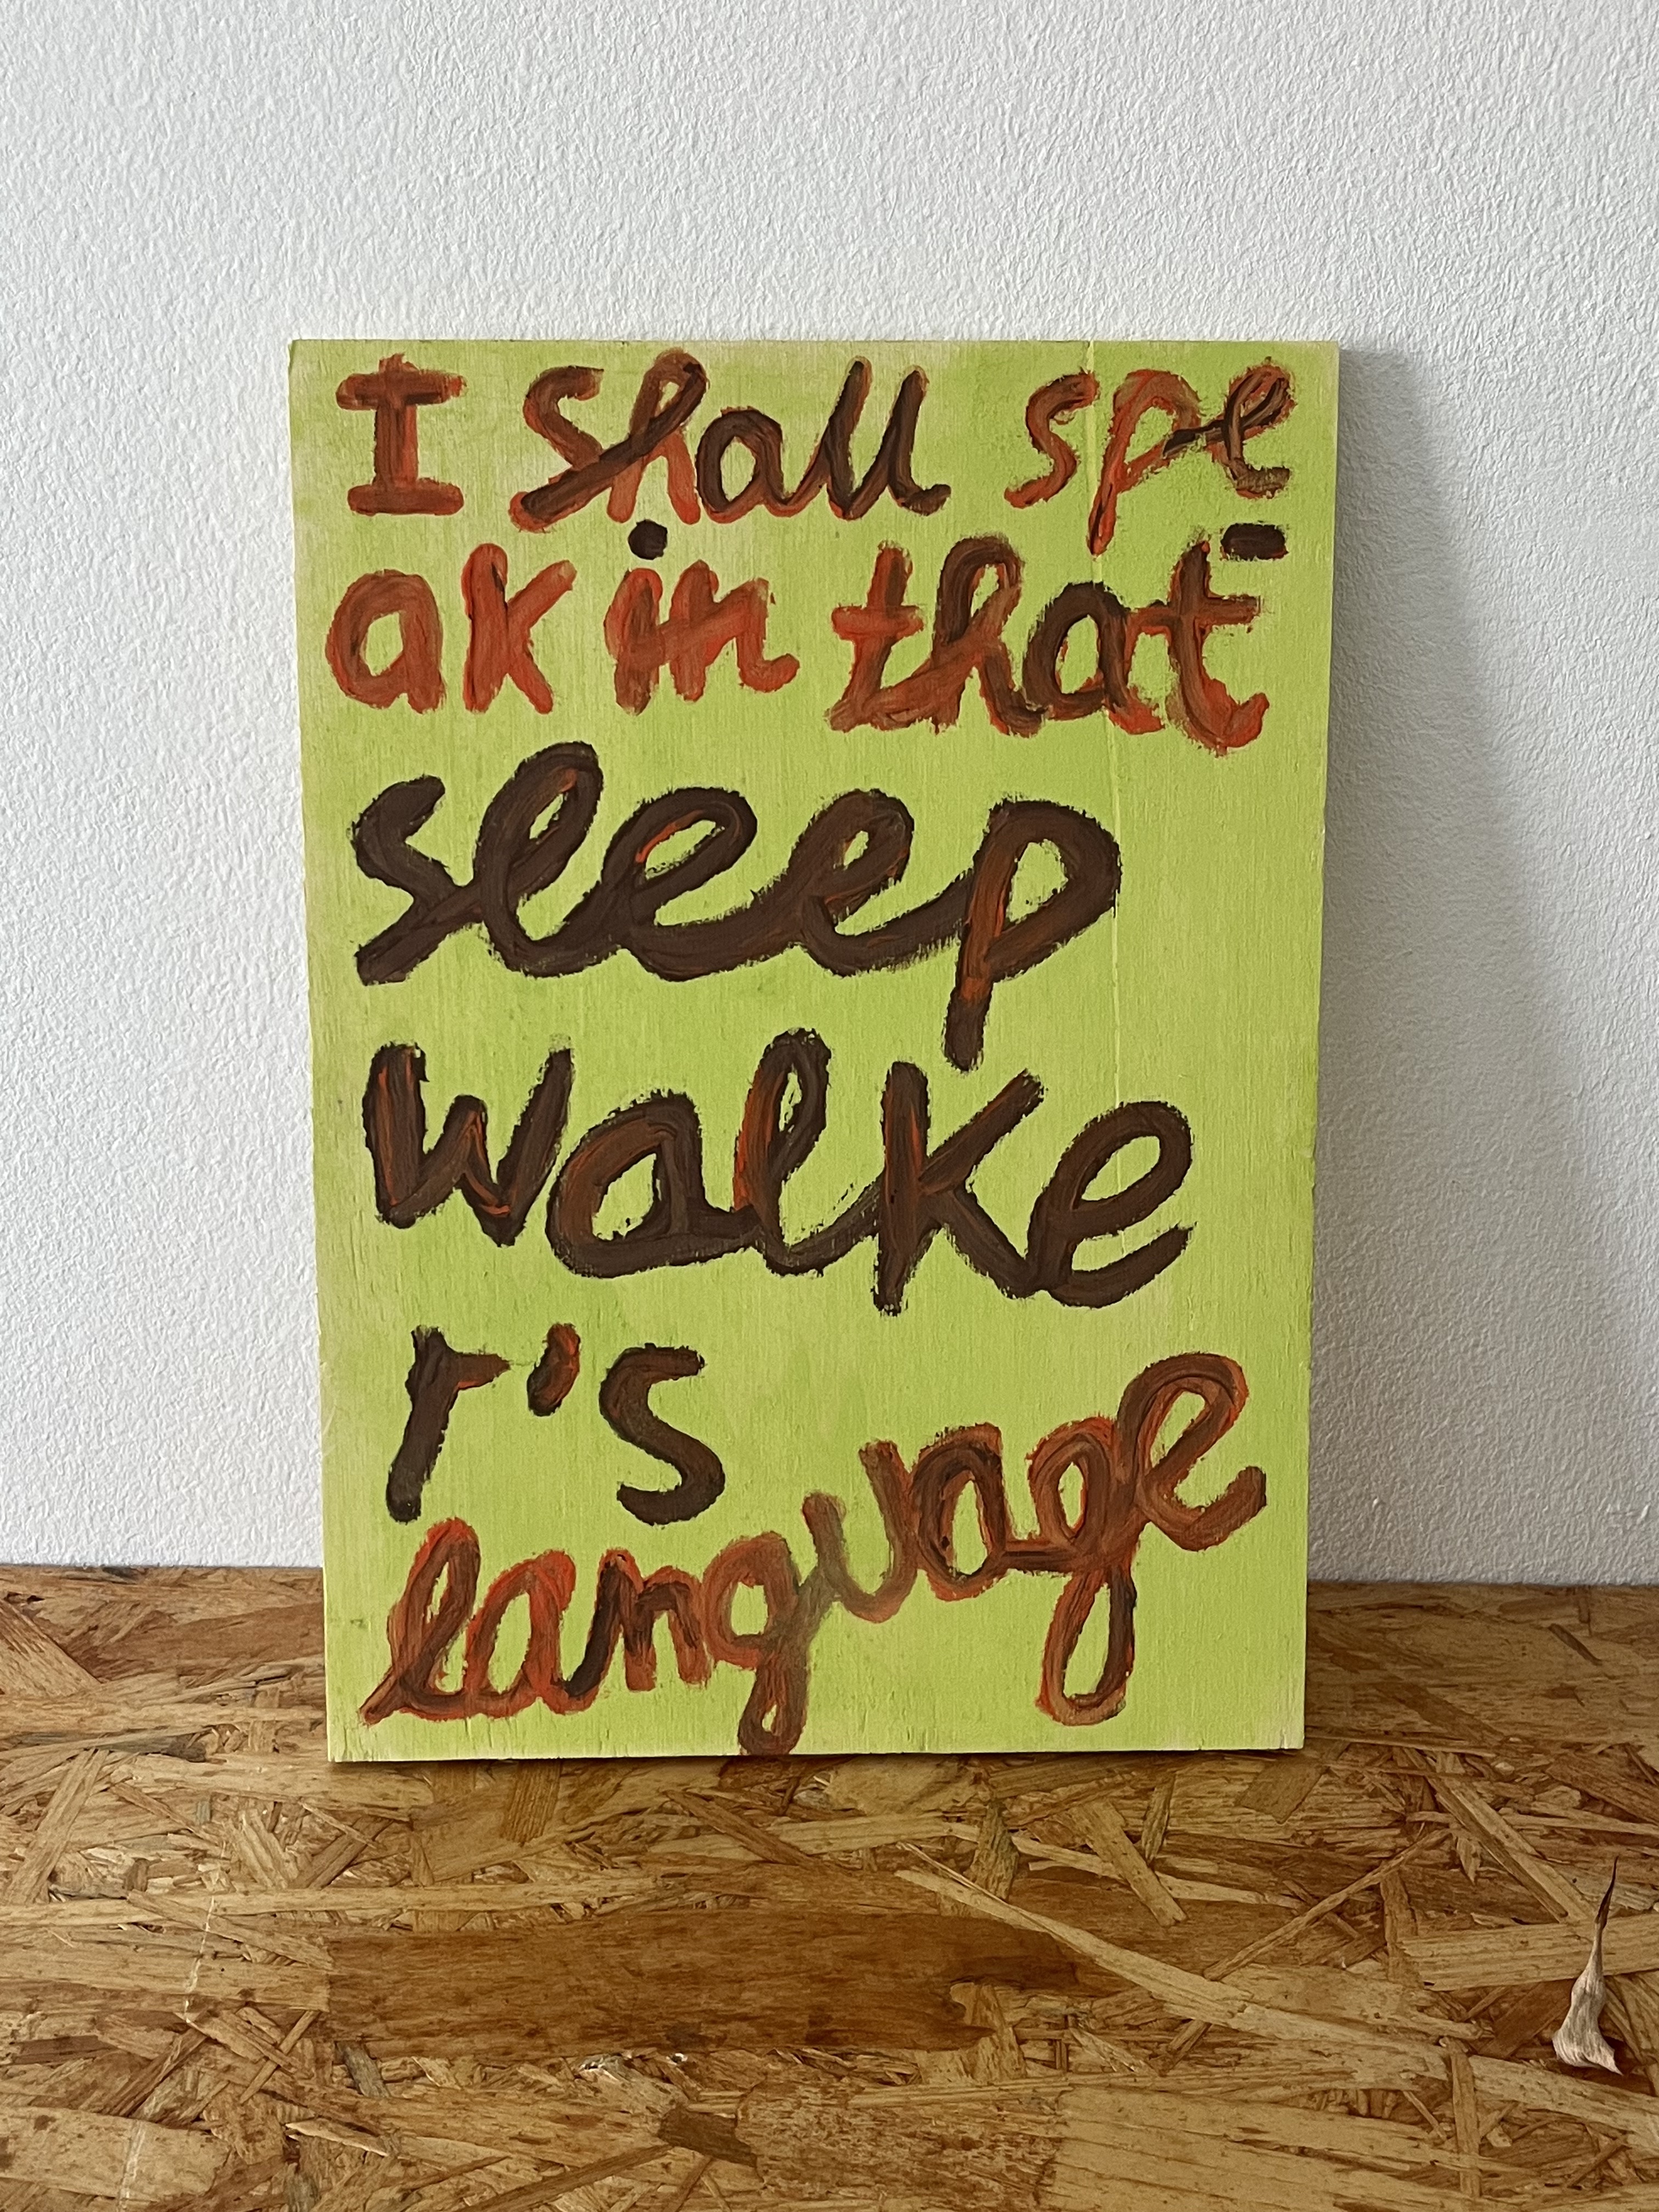 I shall spe-
ak in that
sleep
walke
r's
language